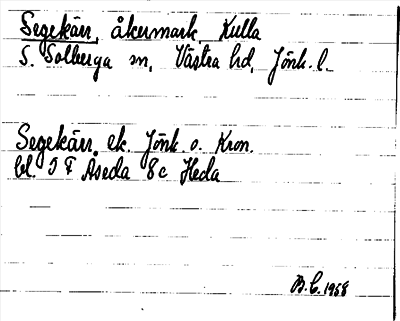 Segekärr, åkermark Kulla
S. Solberga sn, Västra hd, Jönk. l.
Segekärr. ek. Jönk. o. Kron.
bl. 5 F Åseda 8c Heda
B.C. 1968